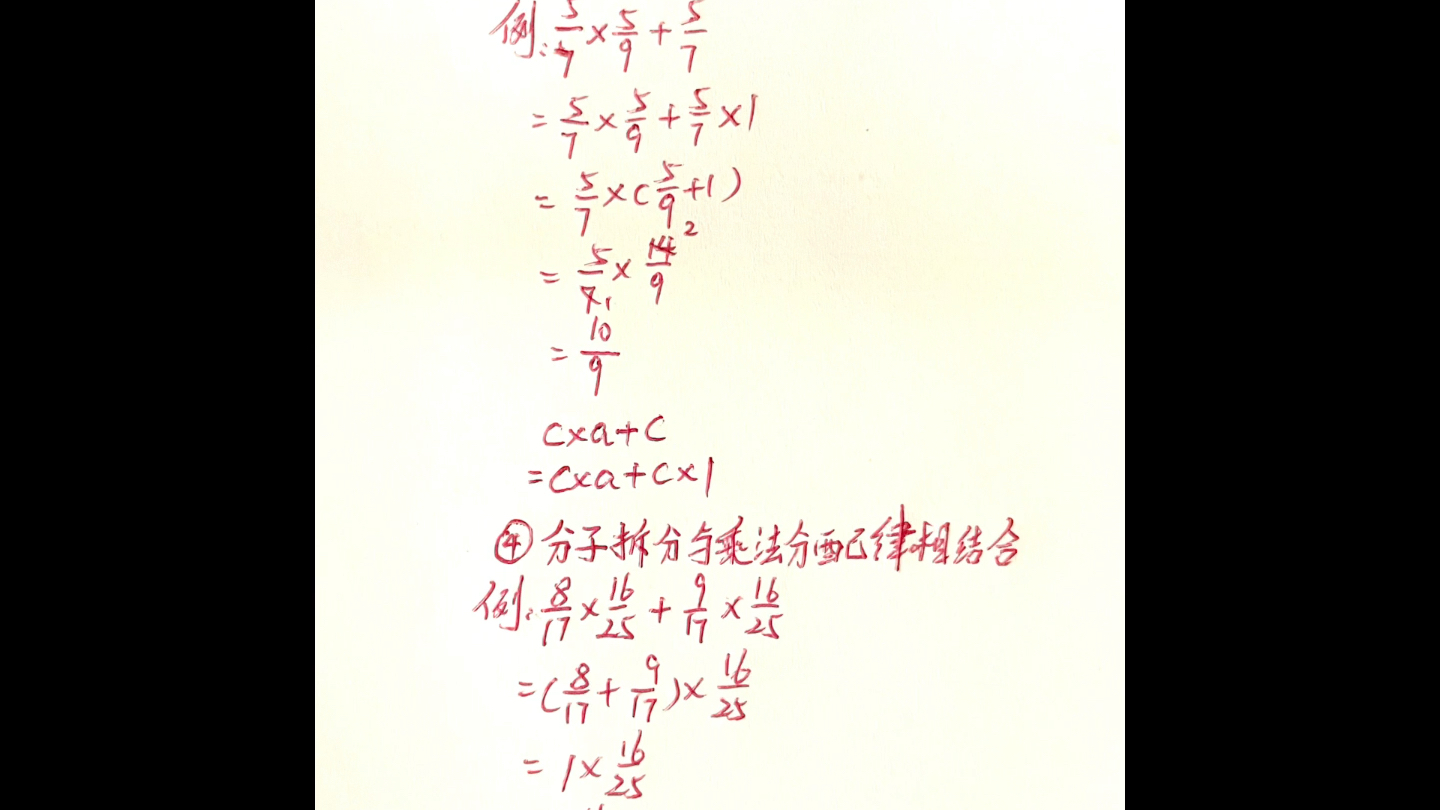 例:5/7×5/9+5/7
=5/7×5/9+5/7×1
=5/7×(5/9+1)
=5/7₁×14²/9
=10/9
c×a+c
=c×a+c×1
④分子拆分与乘法分配律相结合
例:8/17×16/25+9/17×16/25
=(8/17+9/17)×16/25
=1×16/25